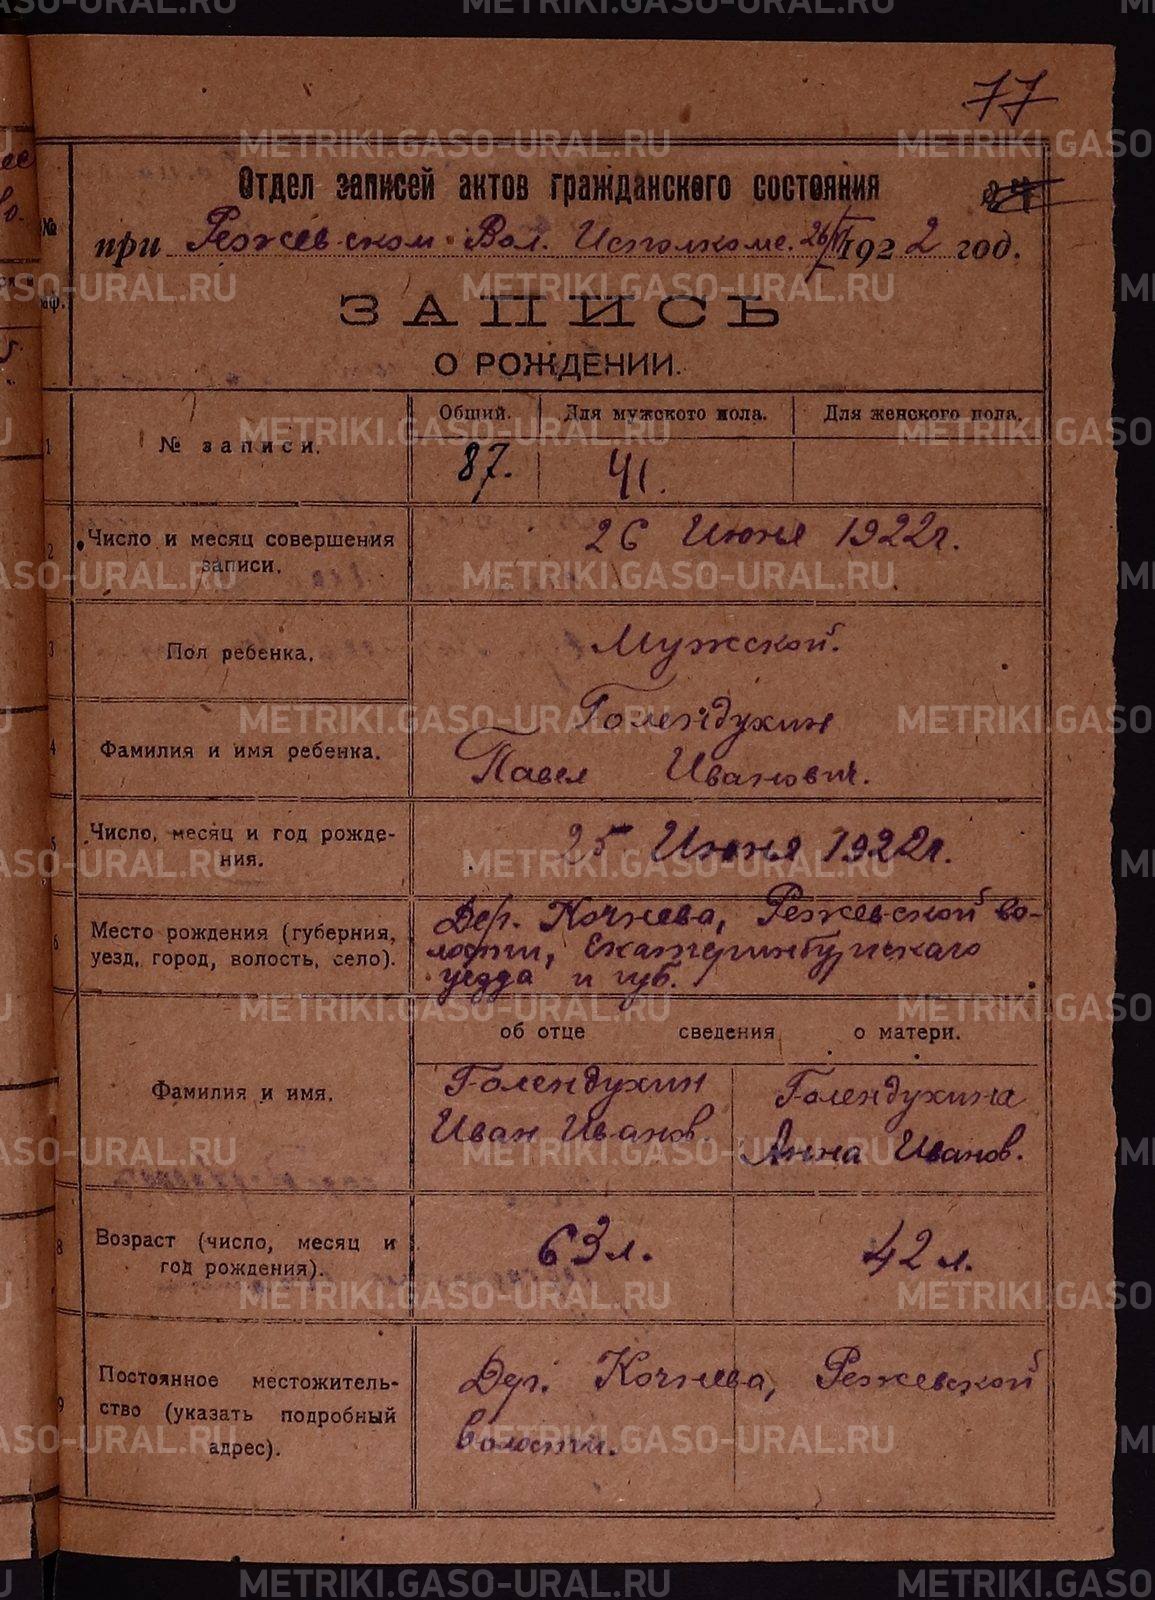 77
Отдел записей актов гражданского состояния
при Режевском Вол. Исполкоме. 26/VI 1922 год.
ЗАПИСЬ
О РОЖДЕНИИ.
Общий. Для мужского пола. Для женского пола.
1 № записи. 87. 41.
2 Число и месяц совершения
записи.
26 Июня 1922 г.
3 Пол ребенка. Мужской.
4 Фамилия и имя ребенка.
Голендухин
Павел Иванович.
5 Число, месяц и год рожде-
ния.
25 Июня 1922 г.
6 Место рождения (губерния,
уезд, город, волость, село).
Дер. Кочнева, Режевской во-
лости, Екатеринбургскаго
уезда и губ.
об отце сведения о матери.
7 Фамилия и имя.
Голендухин
Иван Иванов.
Голендухина
Анна Иванов.
8 Возраст (число, месяц и
год рождения).
63 л. 42 л.
9 Постоянное местожитель-
ство (указать подробный
адрес).
Дер. Кочнева, Режевской
волости.
METRIKI.GASO-URAL.RU